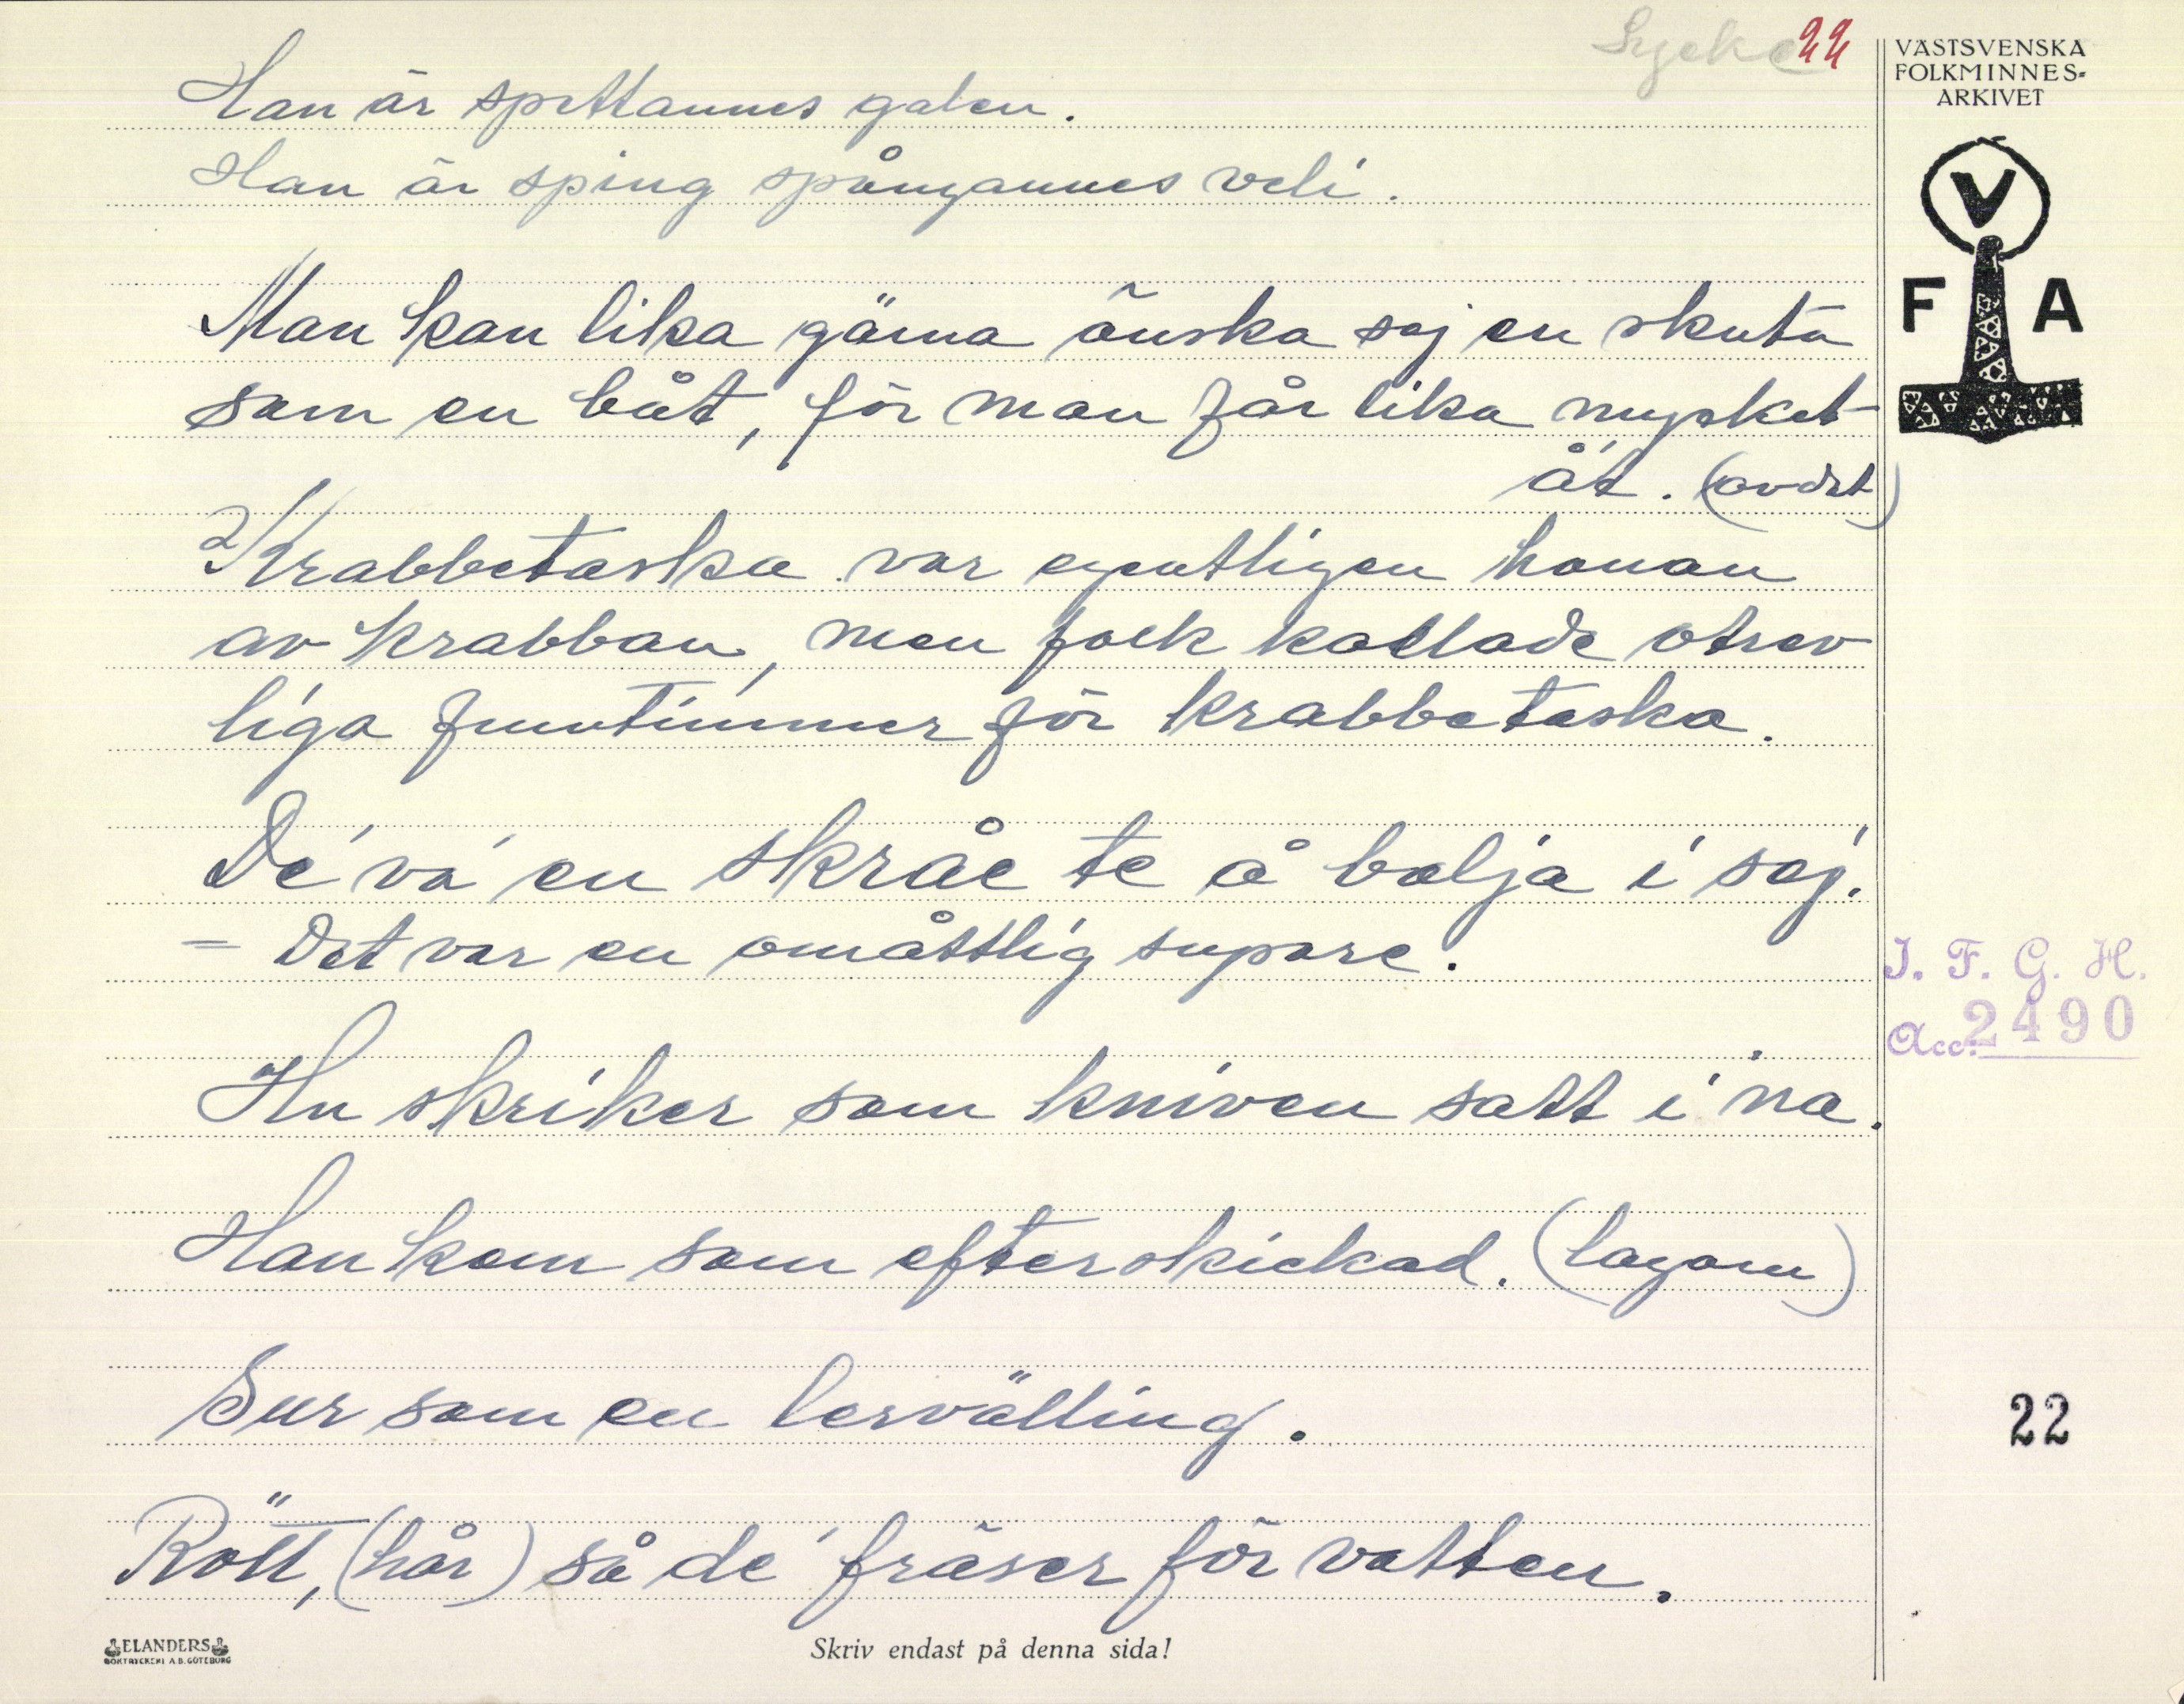 Lycke 22
VÄSTSVENSKA
FOLKMINNES-
ARKIVET
V
F A
Han är spettannes galen.
Han är sping spångannes veli.
Man kan lika gärna önska saj en skuta
som en båt, för man får lika mysket
åt. (avdet)
Krabbetaska var egentligen honan
av krabban, men folk kallade otrev
liga fruntimmer för krabbetaska.
De' va' en skråe te å balja i saj.
= Det var en omåttlig supare.
Hu skriker som kniven satt i'na.
Han kom som efterskickad. (lagom)
Sur som en lervälling.
Rött, (hår) så de' fräser för vatten.
J. F. G. H.
Acc: 2490
22
ELANDERS
BOKTRYCKERI A.B. GÖTEBORG
Skriv endast på denna sida!